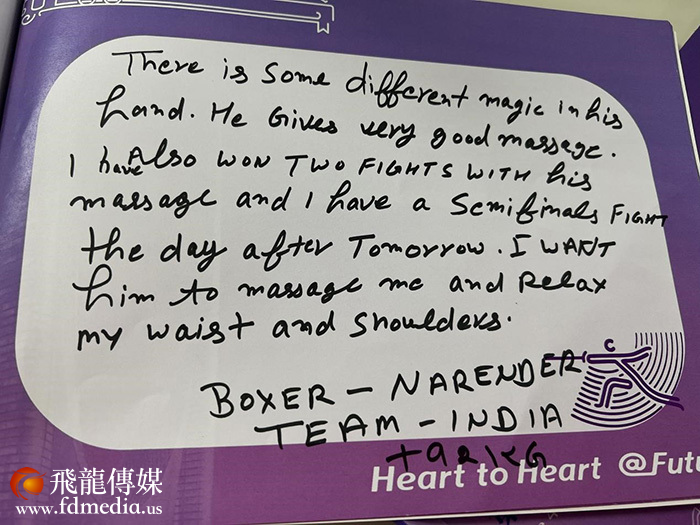 There is some different magic in his
hand. He Gives very good massage.
I have Also WON TWO FIGHTS WITH his
massage and I have a Semifinals FIGHT
the day after Tomorrow. I WANT
him to massage me and Relax
my waist and shoulders.
C
BOXER – NARENDER
TEAM – INDIA
+92kg
Heart to Heart @Futu
飛龍傳媒
www.fdmedia.us